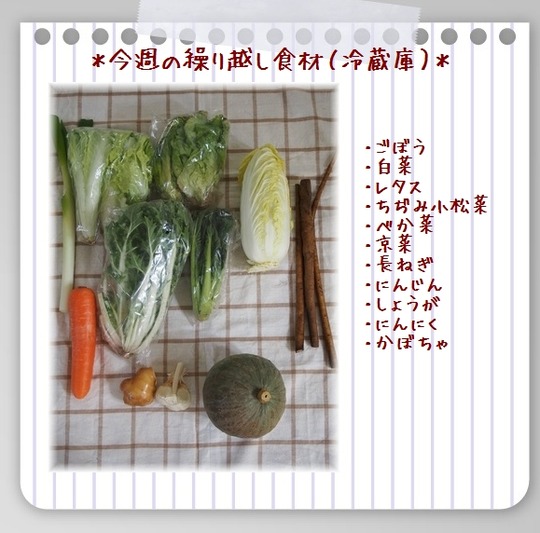 *今週の繰り越し食材(冷蔵庫)*
・ごぼう
・白菜
・レタス
・ちぢみ小松菜
・べか菜
・京菜
・長ねぎ
・にんじん
・しょうが
・にんにく
・かぼちゃ